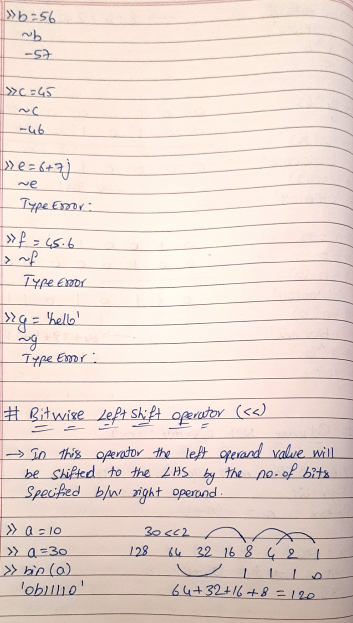 >> b=56
~b
-57
>> c=45
~c
-46
>> e=6+7j
~e
Type Error:
>> f = 45.6
> ~f
Type Error
>> g = 'hello'
~g
Type Error:
# Bitwise Left Shift operator (<<)
→ In this operator the left operand value will
be shifted to the LHS by the no. of bits
Specified b/w right operand.
>> a=10 30<<2
>> a=30 128 64 32 16 8 4 2 1
>> bin(a) 1 1 1 1 0
'0b11110' 64+32+16+8=120